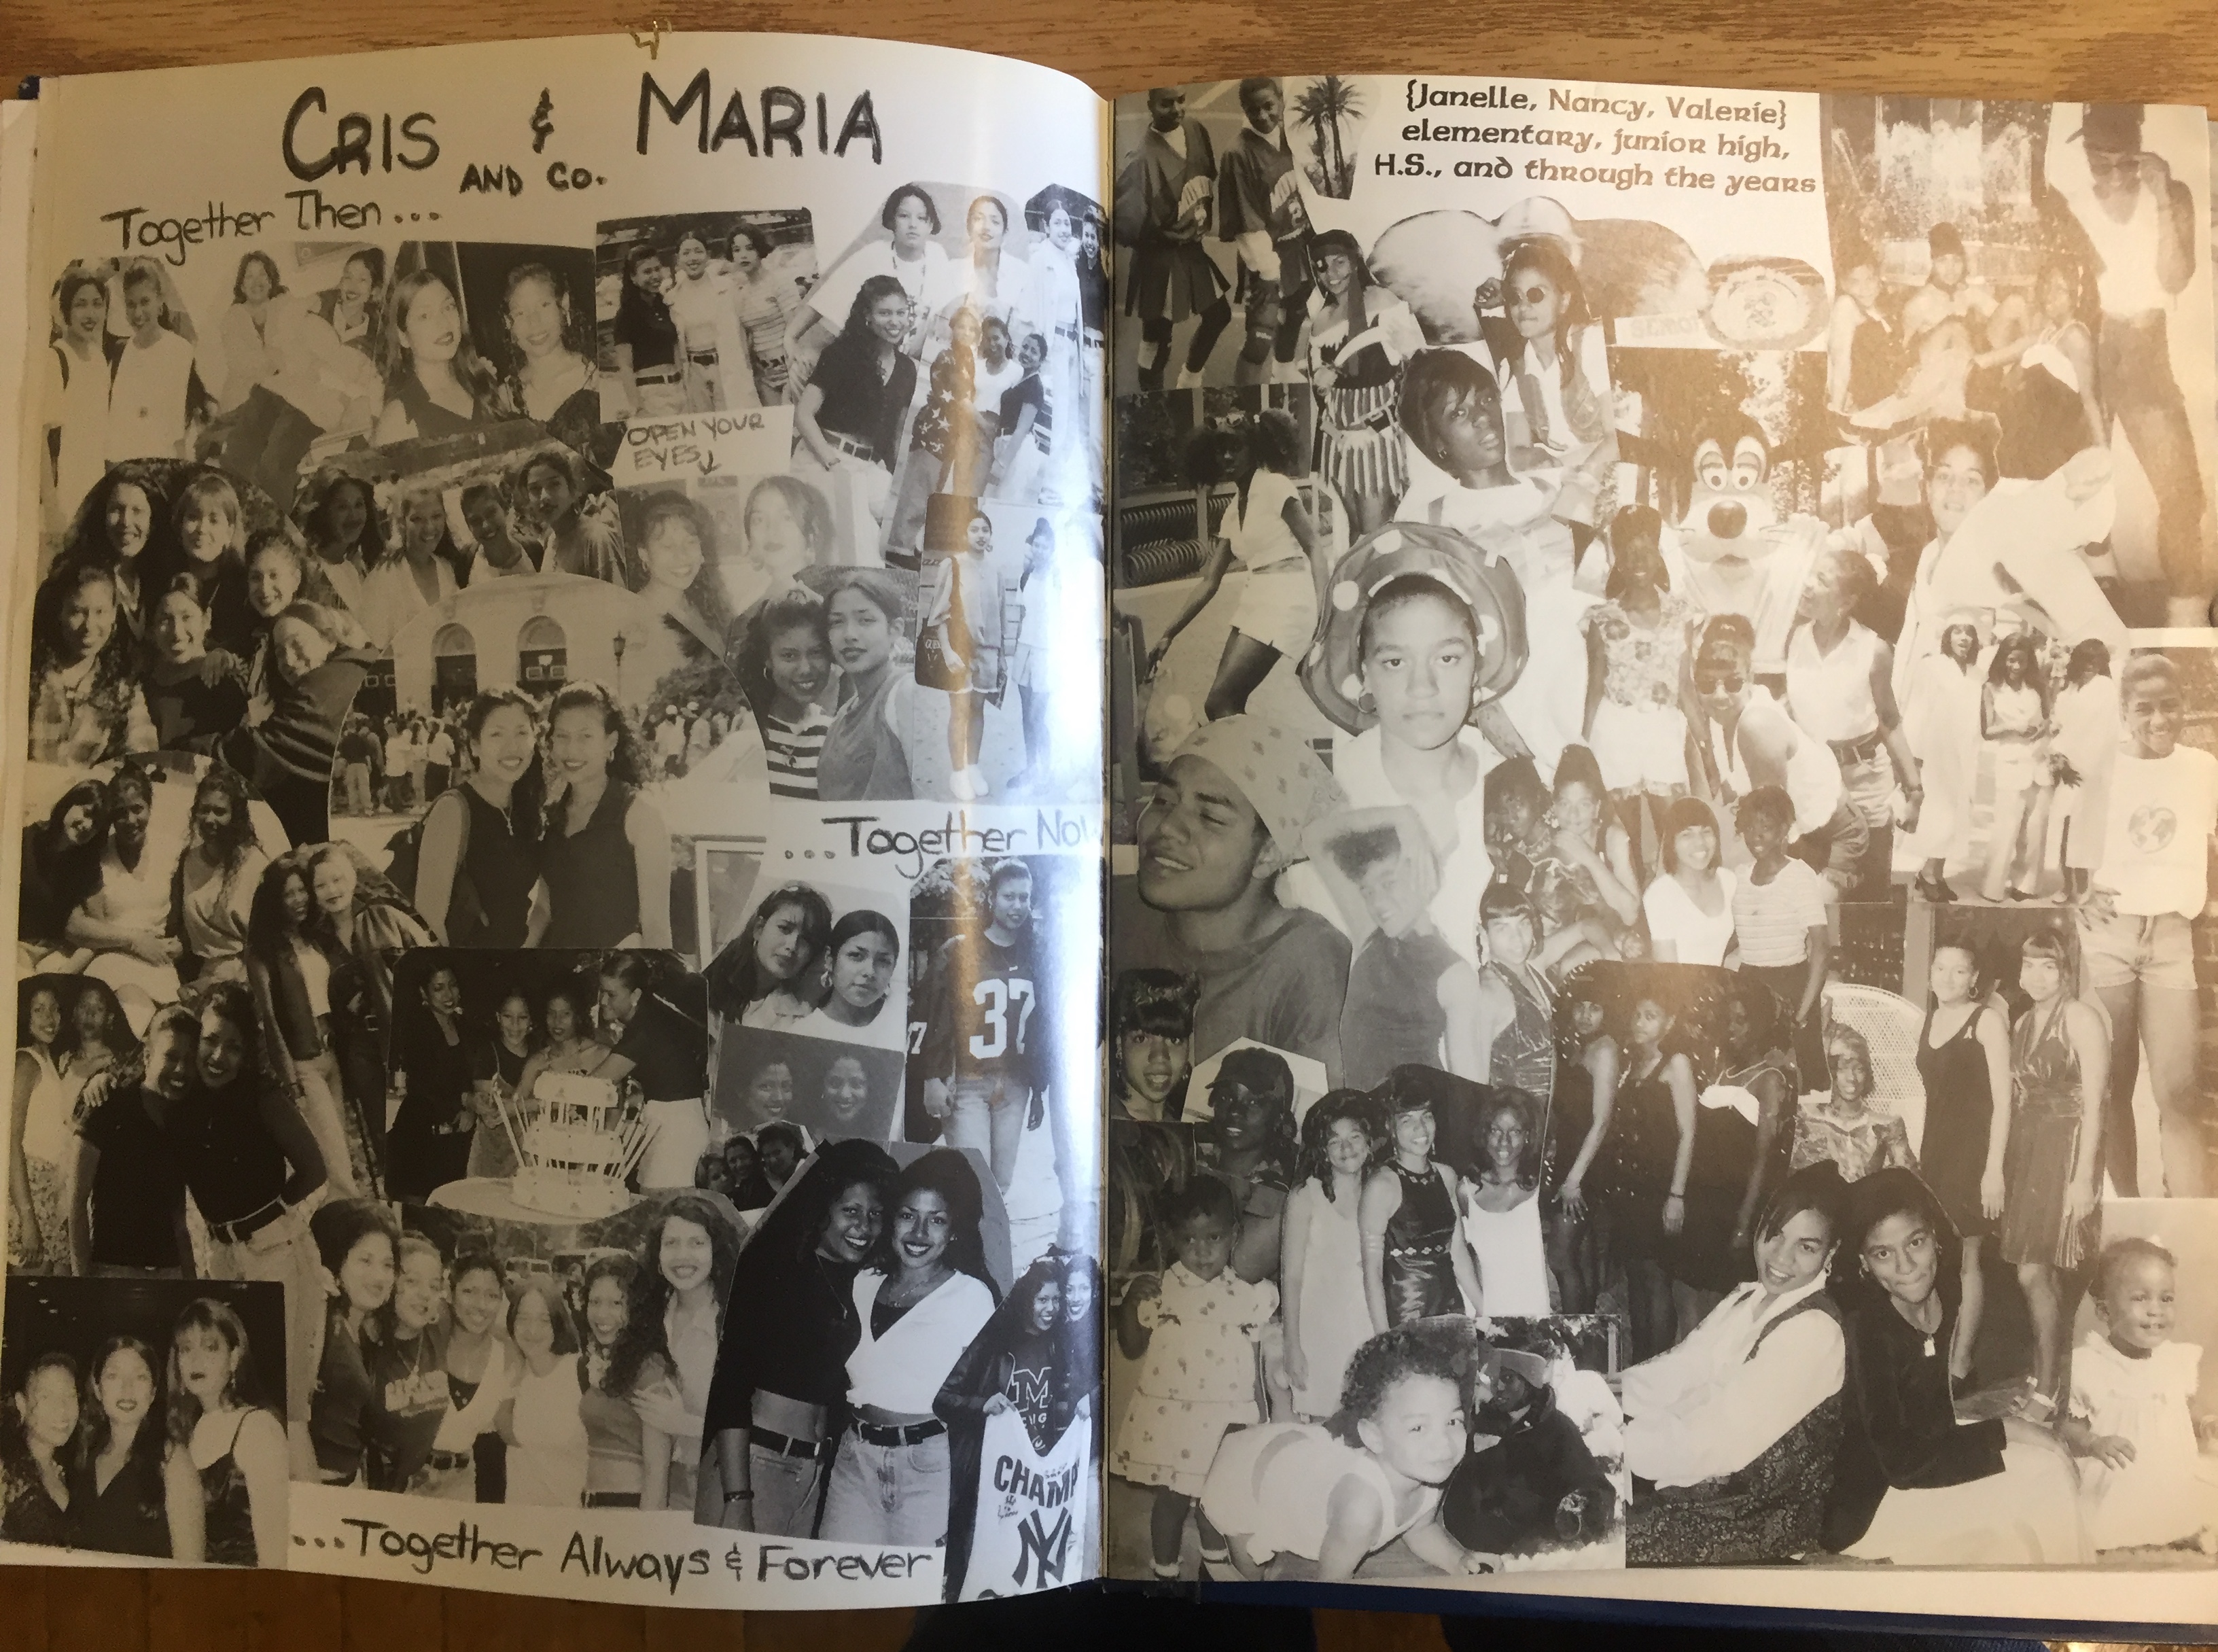 CRIS & MARIA
AND CO.
Together Then...
OPEN YOUR
EYES↓
...Together Now
37
CHAMP
NY
...Together Always & Forever
{Janelle, Nancy, Valerie}
elementary, junior high,
H.S., and through the years